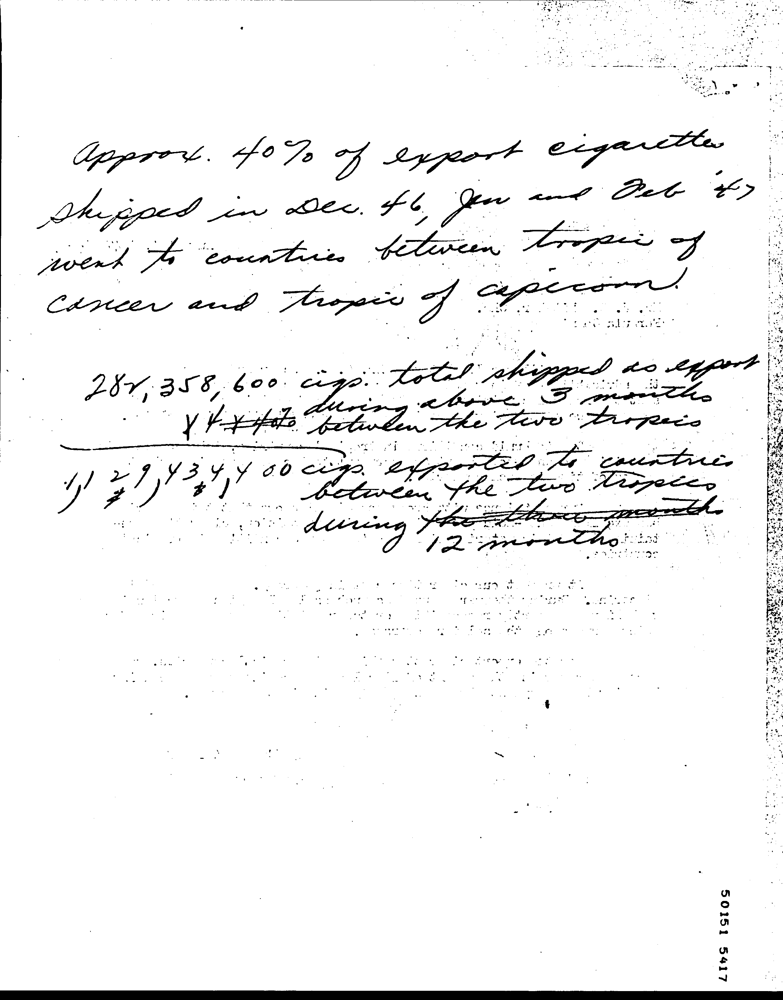 Approx. 40% of export cigarettes
shipped in Dec. 46, Jan and Feb '47
went to countries between tropic of
cancer and tropic of capicorn.
282,358,600 cigs. total shipped as export
during above 3 months
X 4 X 40% between the two tropics
1,129,434,400 cigs. exported to countries
between the two tropics
during the three months
12 months
50151 5417